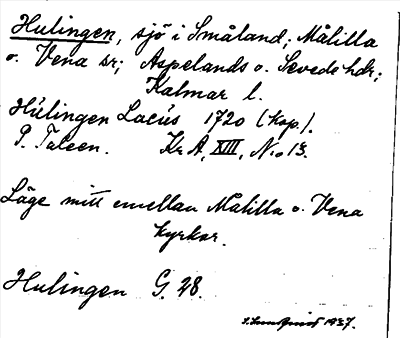 Hulingen, sjö i Småland; Målilla
o. Vena snr; Aspelands o. Sevede hdr;
Kalmar l.
Hulingen Lacus 1720 (kop.).
P. Tuleen. Kr A, XIII, N:o 13.
Läge mitt emellan Målilla o. Vena
kyrkor.
Hulingen G. 28.
1937.